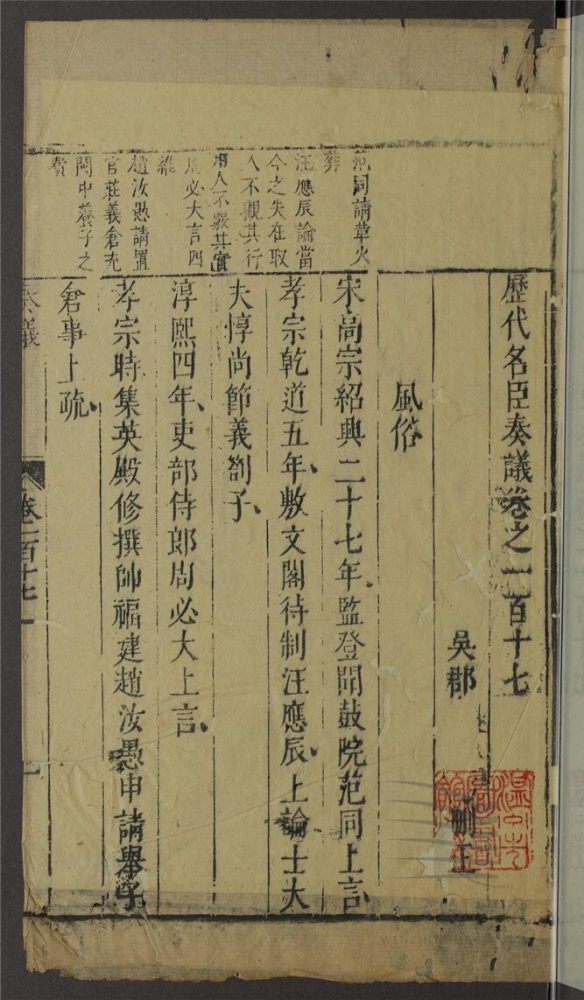 歷代名臣奏議卷之一百十七
吳郡
刪正
風俗
宋高宗紹興二十七年監登聞鼓院范同上言
孝宗乾道五年敷文閣待制汪應辰上論士大
夫惇尚節義劄子
淳熙四年吏部侍郎周必大上言
孝宗時集英殿修撰帥福建趙汝愚申請舉子
倉事上疏
范同請革火
葬
汪應辰論當
今之失在取
人不觀其行
用人不覈其實
周必大言四
維
趙汝愚請置
官莊義倉充
閩中養子之
費
奏議
卷一百十七
一